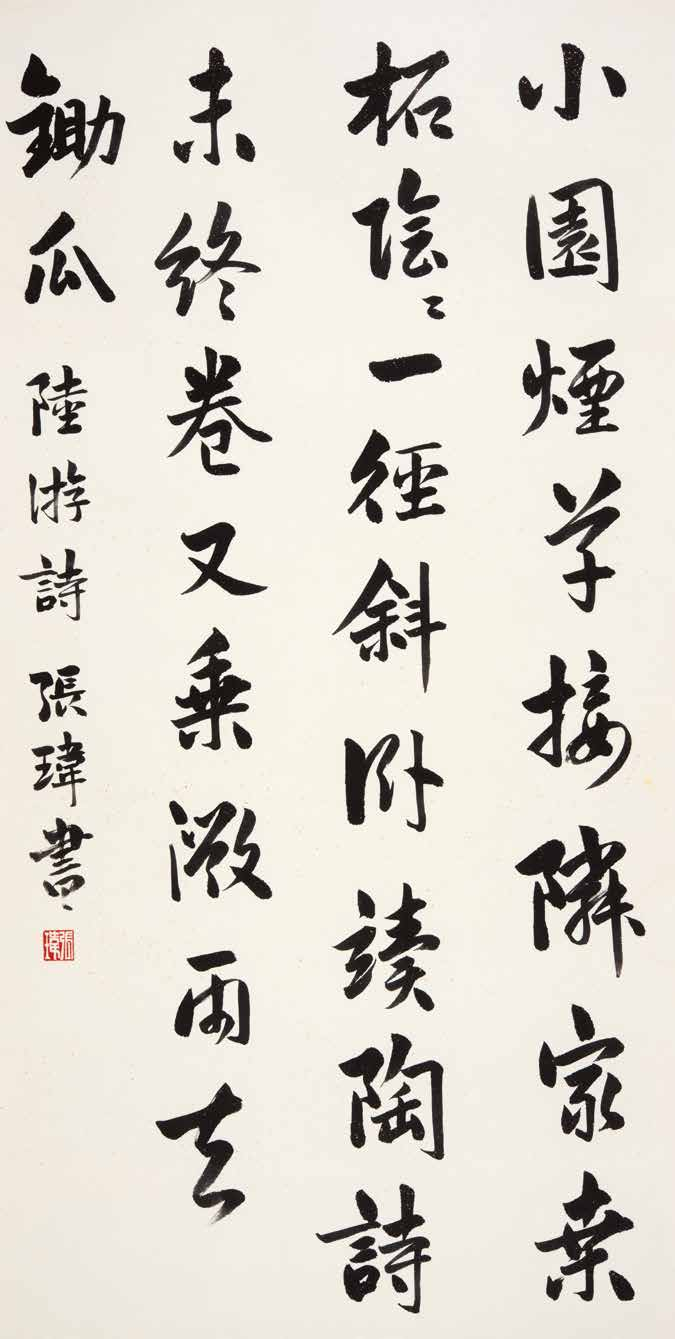 小園煙草接隣家桒
柘陰々一徑斜卧讀陶詩
未終卷又乗微雨去
鋤瓜 陸游詩 張瑋書
張瑋